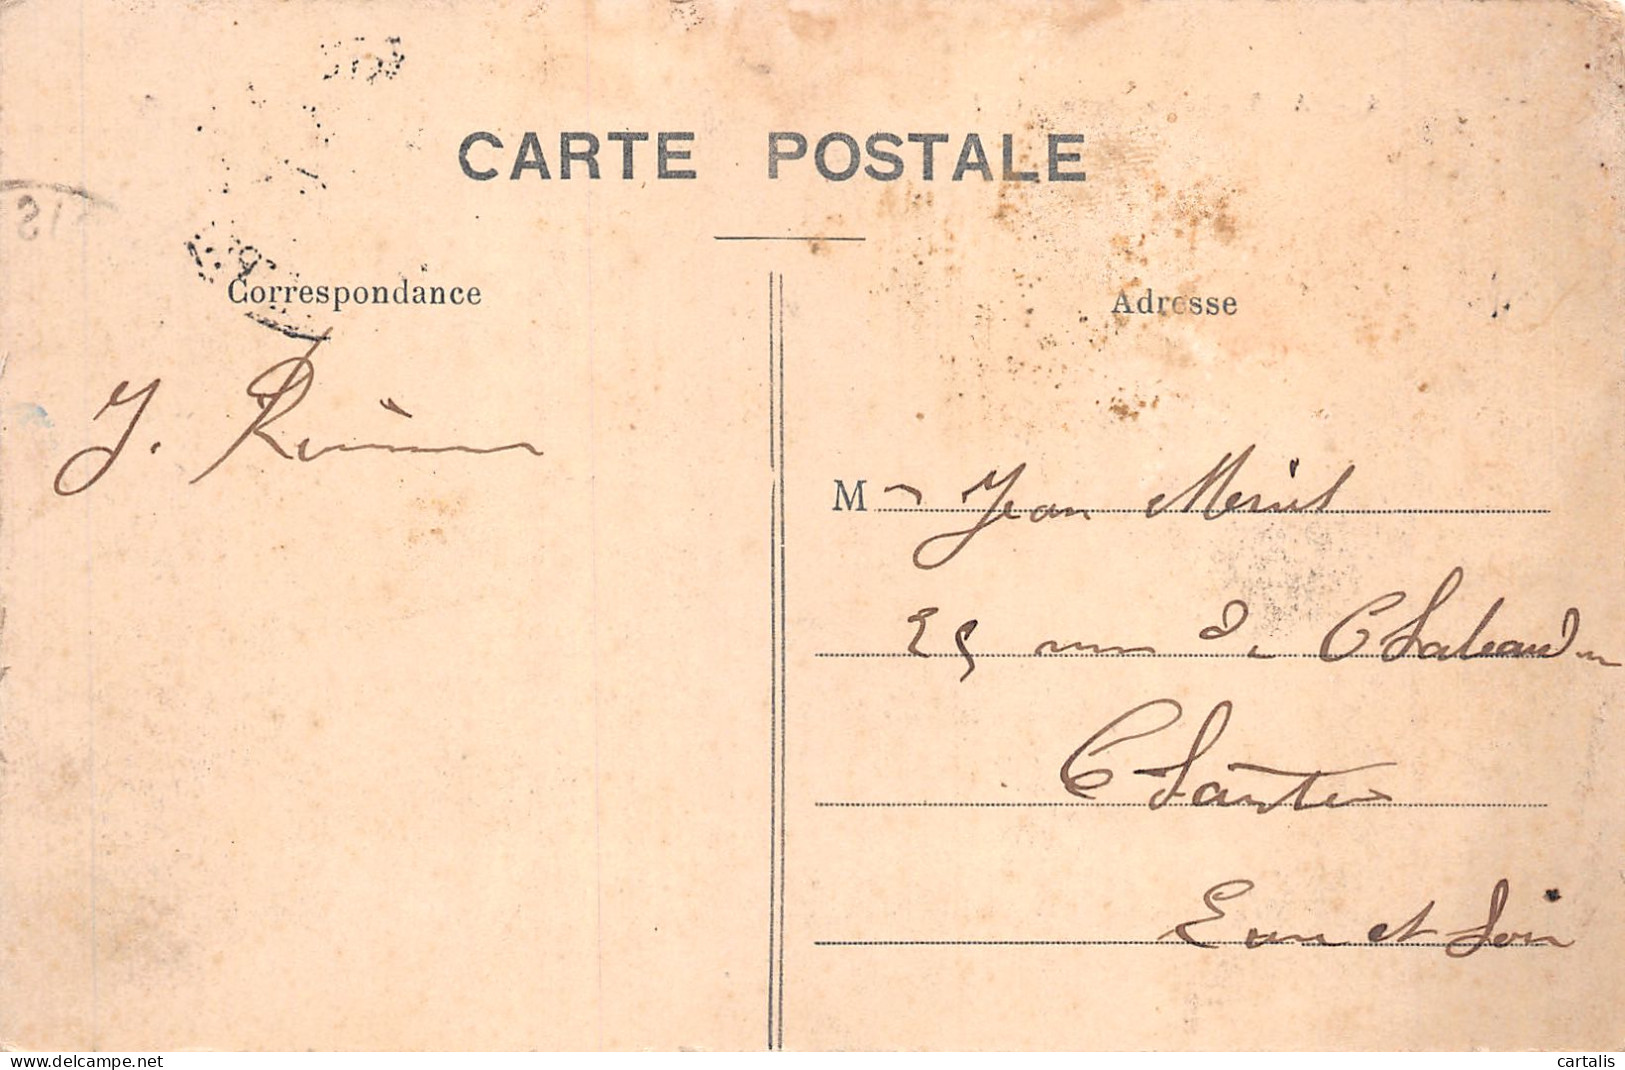 CARTE POSTALE
Correspondance
Adresse
J.
M Jean
25 rue de Chateaudun
Chartres
Eure et Loir
delcampe.net
cartalis